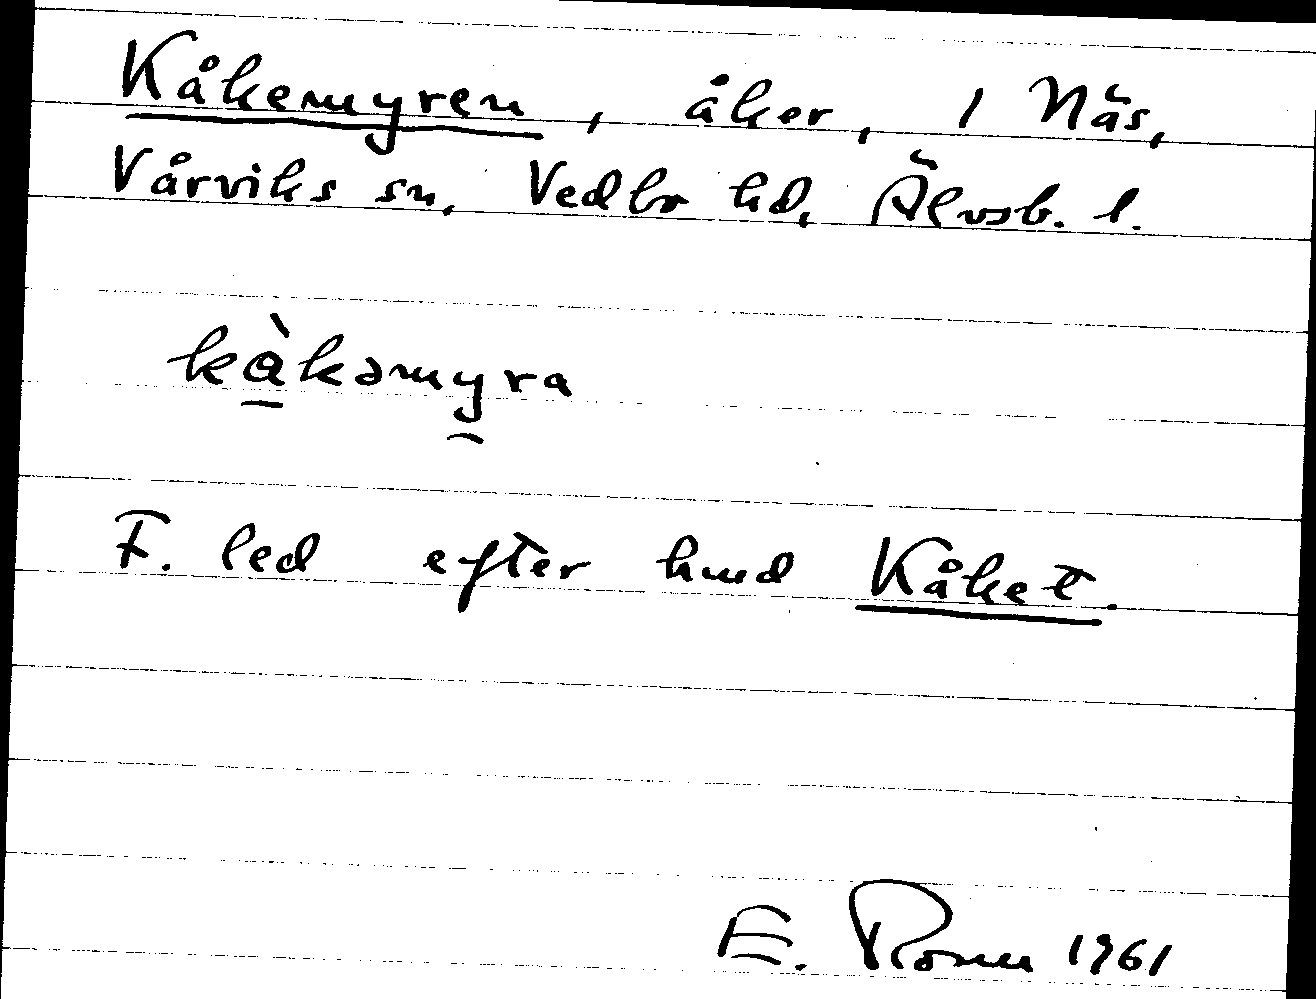 Kåkemyren, åker, 1 Näs,
Vårviks sn, Vedbo hd, Älvsb. l.
kàkəmyra
F. led efter hmd Kåket.
E. Rosu 1961